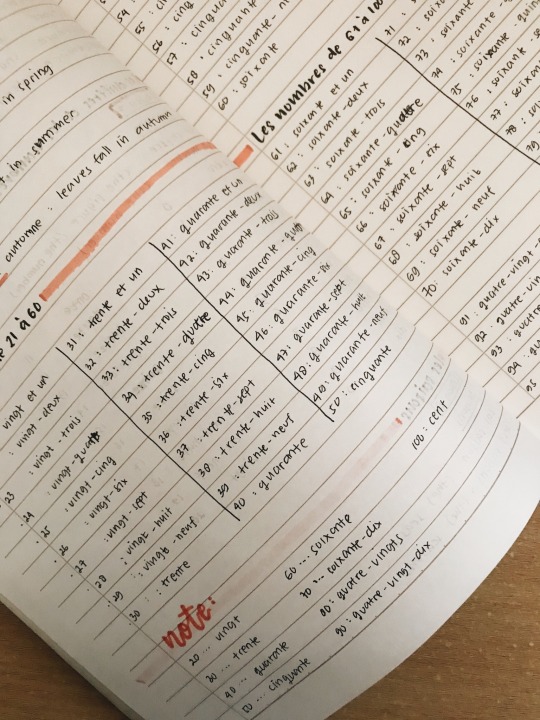 in spring
in summer
automne : leaves fall in autumn
21 à 60
vingt et un
: vingt-deux
23 : vingt-trois
24 : vingt-quatre
25 : vingt-cinq
26 : vingt-six
27 : vingt-sept
28 : vingt-huit
29 : vingt-neuf
30 : trente
31 : trente et un
32 : trente-deux
33 : trente-trois
34 : trente-quatre
35 : trente-cinq
36 : trente-six
37 : trente-sept
38 : trente-huit
39 : trente-neuf
40 : quarante
41 : quarante et un
42 : quarante-deux
43 : quarante-trois
44 : quarante-quatre
45 : quarante-cinq
46 : quarante-six
47 : quarante-sept
48 : quarante-huit
49 : quarante-neuf
50 : cinquante
note:
20 ... vingt
30 ... trente
40 ... quarante
50 ... cinquante
60 ... soixante
70 ... soixante-dix
80 : quatre-vingts
90 : quatre-vingt-dix
100 : cent
54
55
56 : cinquante
57 : cinq
58 : cinquante
59 : cinquante-
60 : soixante
Les nombres de 61 à 100
61 : soixant et un
62 : soixante-deux
63 : soixante-trois
64 : soixante-quatre
65 : soixante-cinq
66 : soixante-six
67 : soixante-sept
68 : soixante-huit
69 : soixante-neuf
70 : soixante-dix
71 :
72 : soix
73 : soixante
74 : soixante-
75 : soixante-
76 : soixante
77 : soixan
78 : soix
79 :
91 : quatre-vingt-
92 : quatre-vin
93 : quatre
94 : qua
95